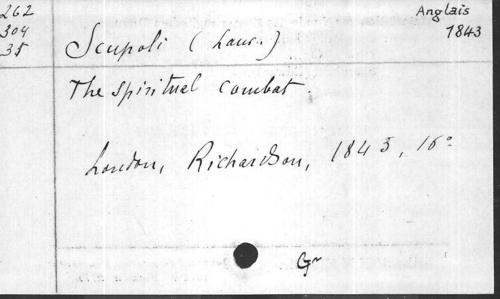 262
304
35
Anglais
1843
Scupoli (Laur.)
The spiritual combat.
London, Richardson, 1843, 16°
Gr